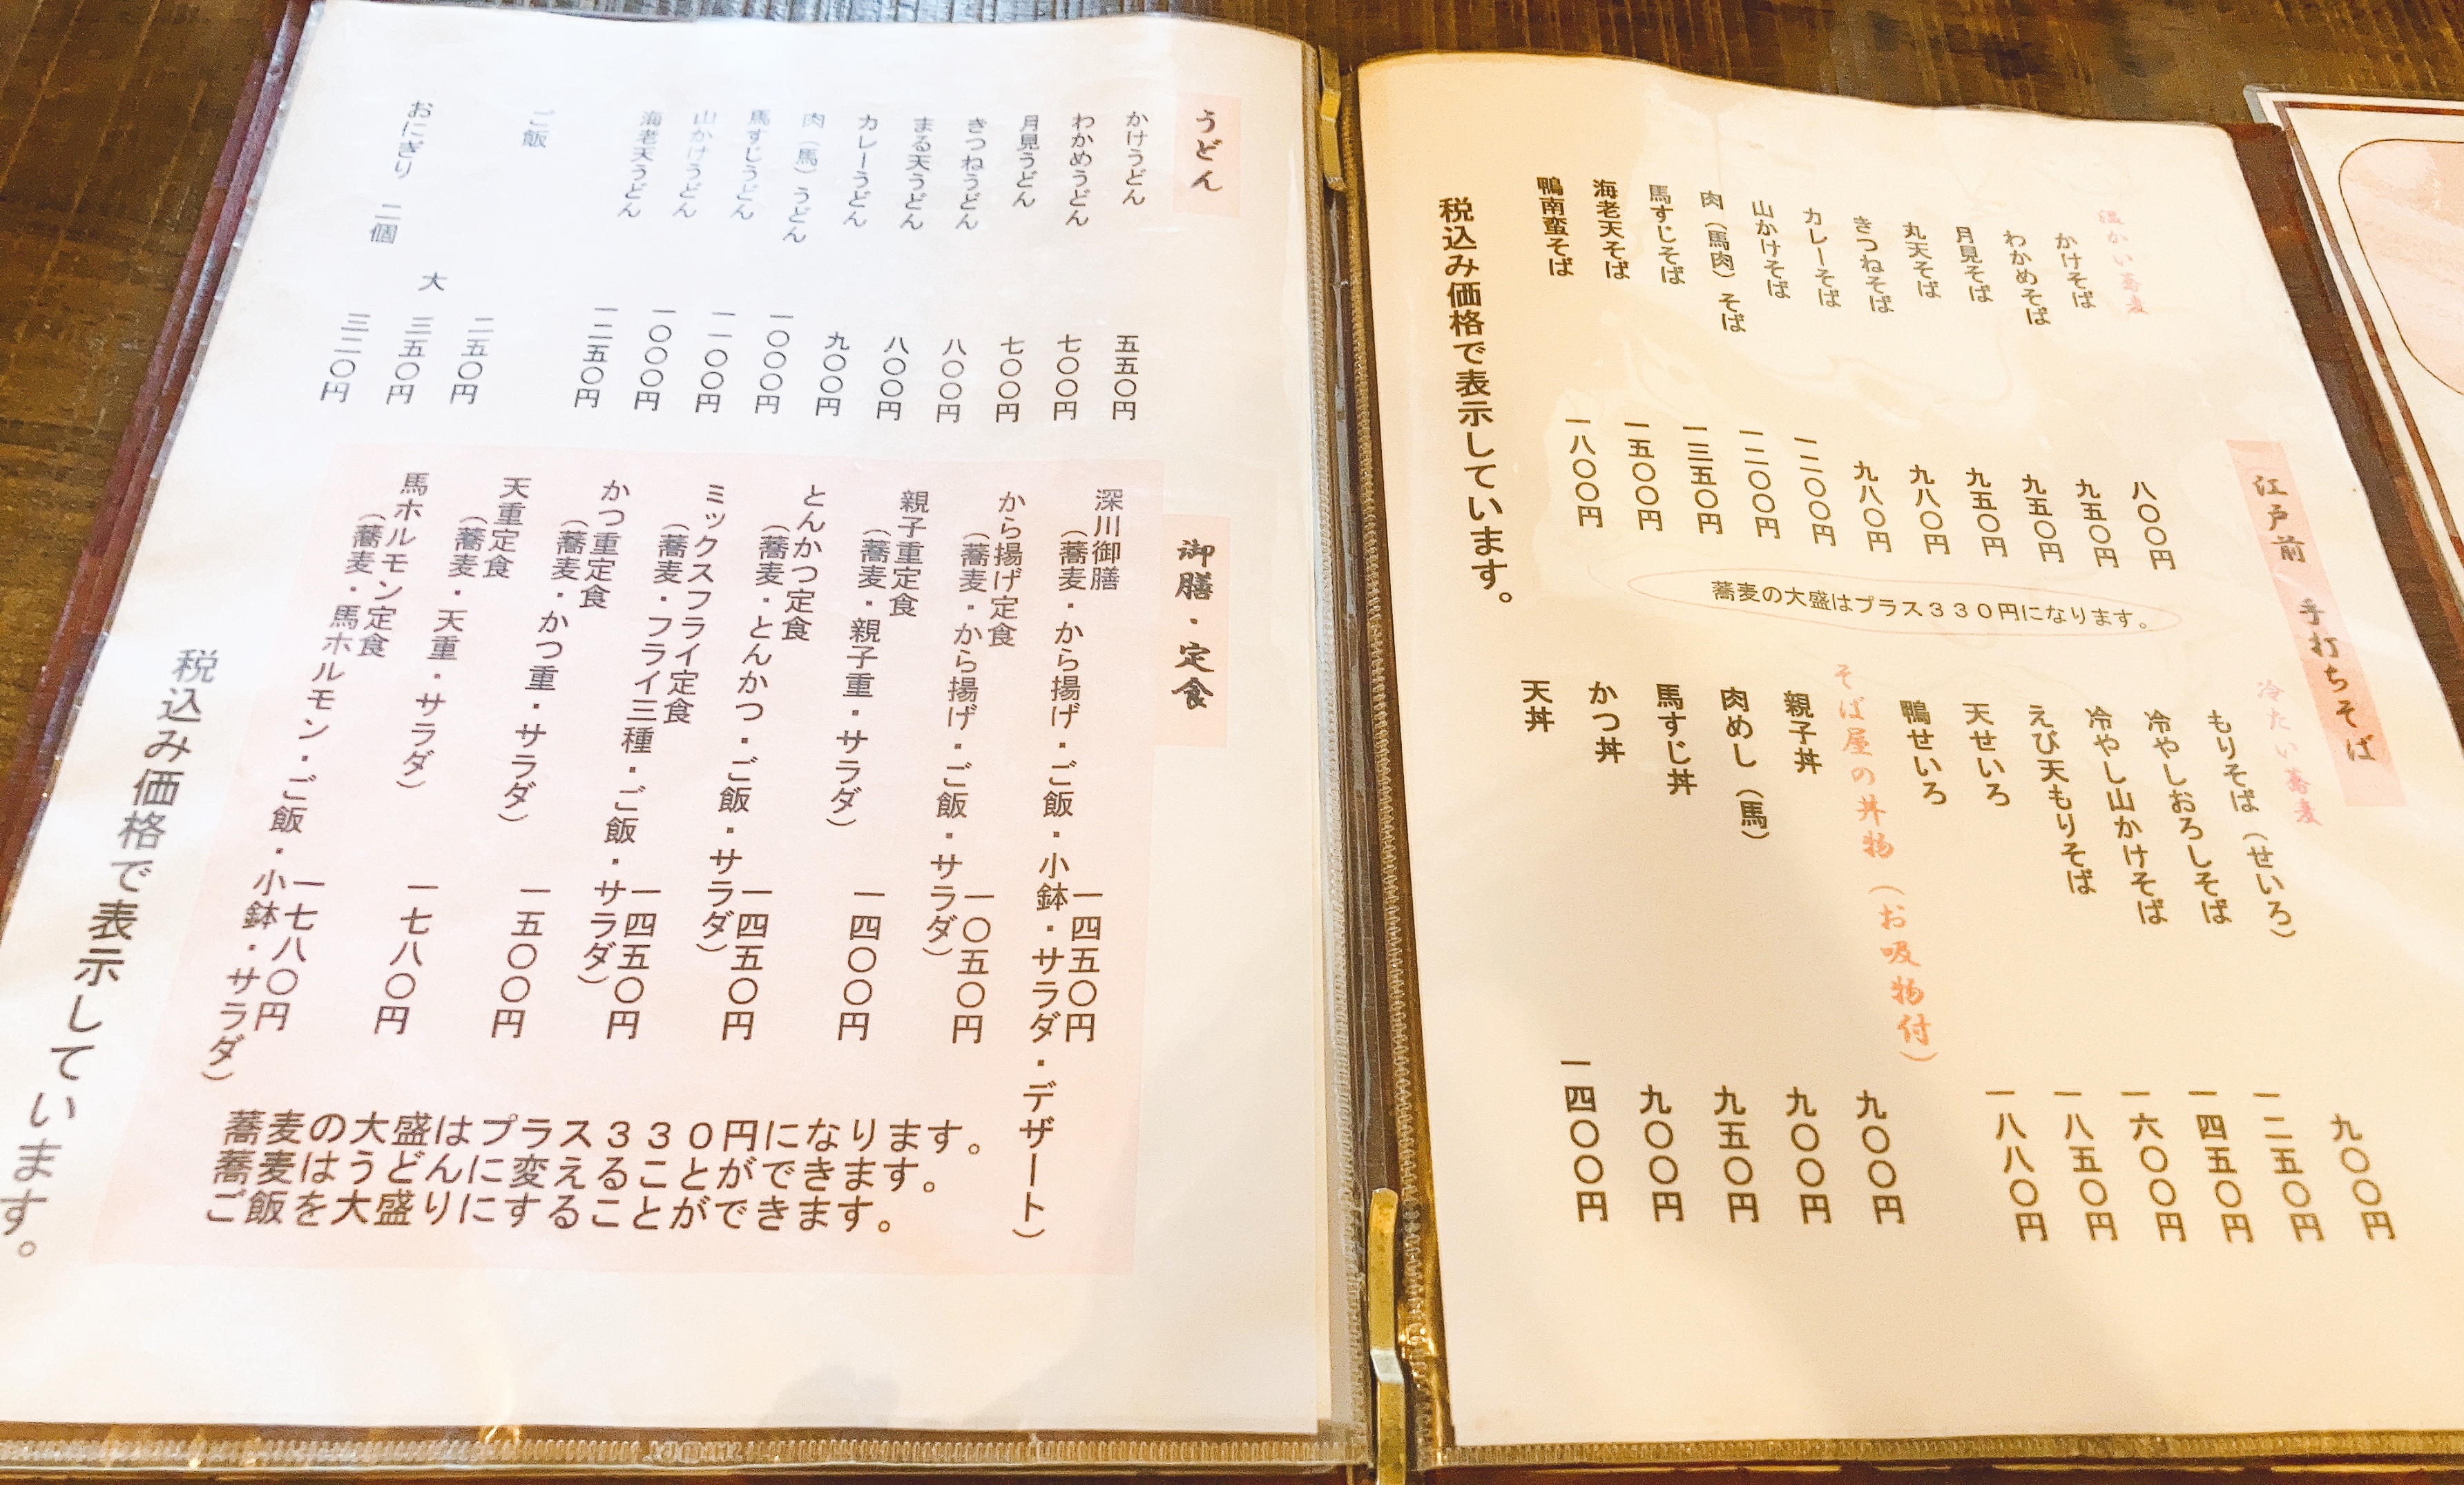 江戸前 手打ちそば
温かい蕎麦
かけそば 八〇〇円
わかめそば 九五〇円
月見そば 九五〇円
丸天そば 九五〇円
きつねそば 九八〇円
カレーそば 九八〇円
山かけそば 一二〇〇円
肉（馬肉）そば 一二〇〇円
馬すじそば 一三五〇円
海老天そば 一五〇〇円
鴨南蛮そば 一八〇〇円
蕎麦の大盛はプラス３３０円になります。
冷たい蕎麦
もりそば（せいろ） 九〇〇円
冷やしおろしそば 一二五〇円
冷やし山かけそば 一四五〇円
えび天もりそば 一六〇〇円
天せいろ 一八五〇円
鴨せいろ 一八八〇円
そば屋の丼物（お吸物付）
親子丼 九〇〇円
肉めし（馬） 九〇〇円
馬すじ丼 九五〇円
かつ丼 九〇〇円
天丼 一四〇〇円
税込み価格で表示しています。
うどん
かけうどん 五五〇円
わかめうどん 七〇〇円
月見うどん 七〇〇円
きつねうどん 八〇〇円
まる天うどん 八〇〇円
カレーうどん 九〇〇円
肉（馬）うどん 一〇〇〇円
馬すじうどん 一一〇〇円
山かけうどん 一〇〇〇円
海老天うどん 一二五〇円
ご飯 二五〇円
大 三五〇円
おにぎり 二個 三二〇円
御膳・定食
深川御膳 一四五〇円
（蕎麦・から揚げ・ご飯・小鉢・サラダ・デザート）
から揚げ定食 一〇五〇円
（蕎麦・から揚げ・ご飯・サラダ）
親子重定食 一四〇〇円
（蕎麦・親子重・サラダ）
とんかつ定食 一四五〇円
（蕎麦・とんかつ・ご飯・サラダ）
ミックスフライ定食 一四五〇円
（蕎麦・フライ三種・ご飯・サラダ）
かつ重定食 一五〇〇円
（蕎麦・かつ重・サラダ）
天重定食 一七八〇円
（蕎麦・天重・サラダ）
馬ホルモン定食 一七八〇円
（蕎麦・馬ホルモン・ご飯・小鉢・サラダ）
蕎麦の大盛はプラス３３０円になります。
蕎麦はうどんに変えることができます。
ご飯を大盛りにすることができます。
税込み価格で表示しています。